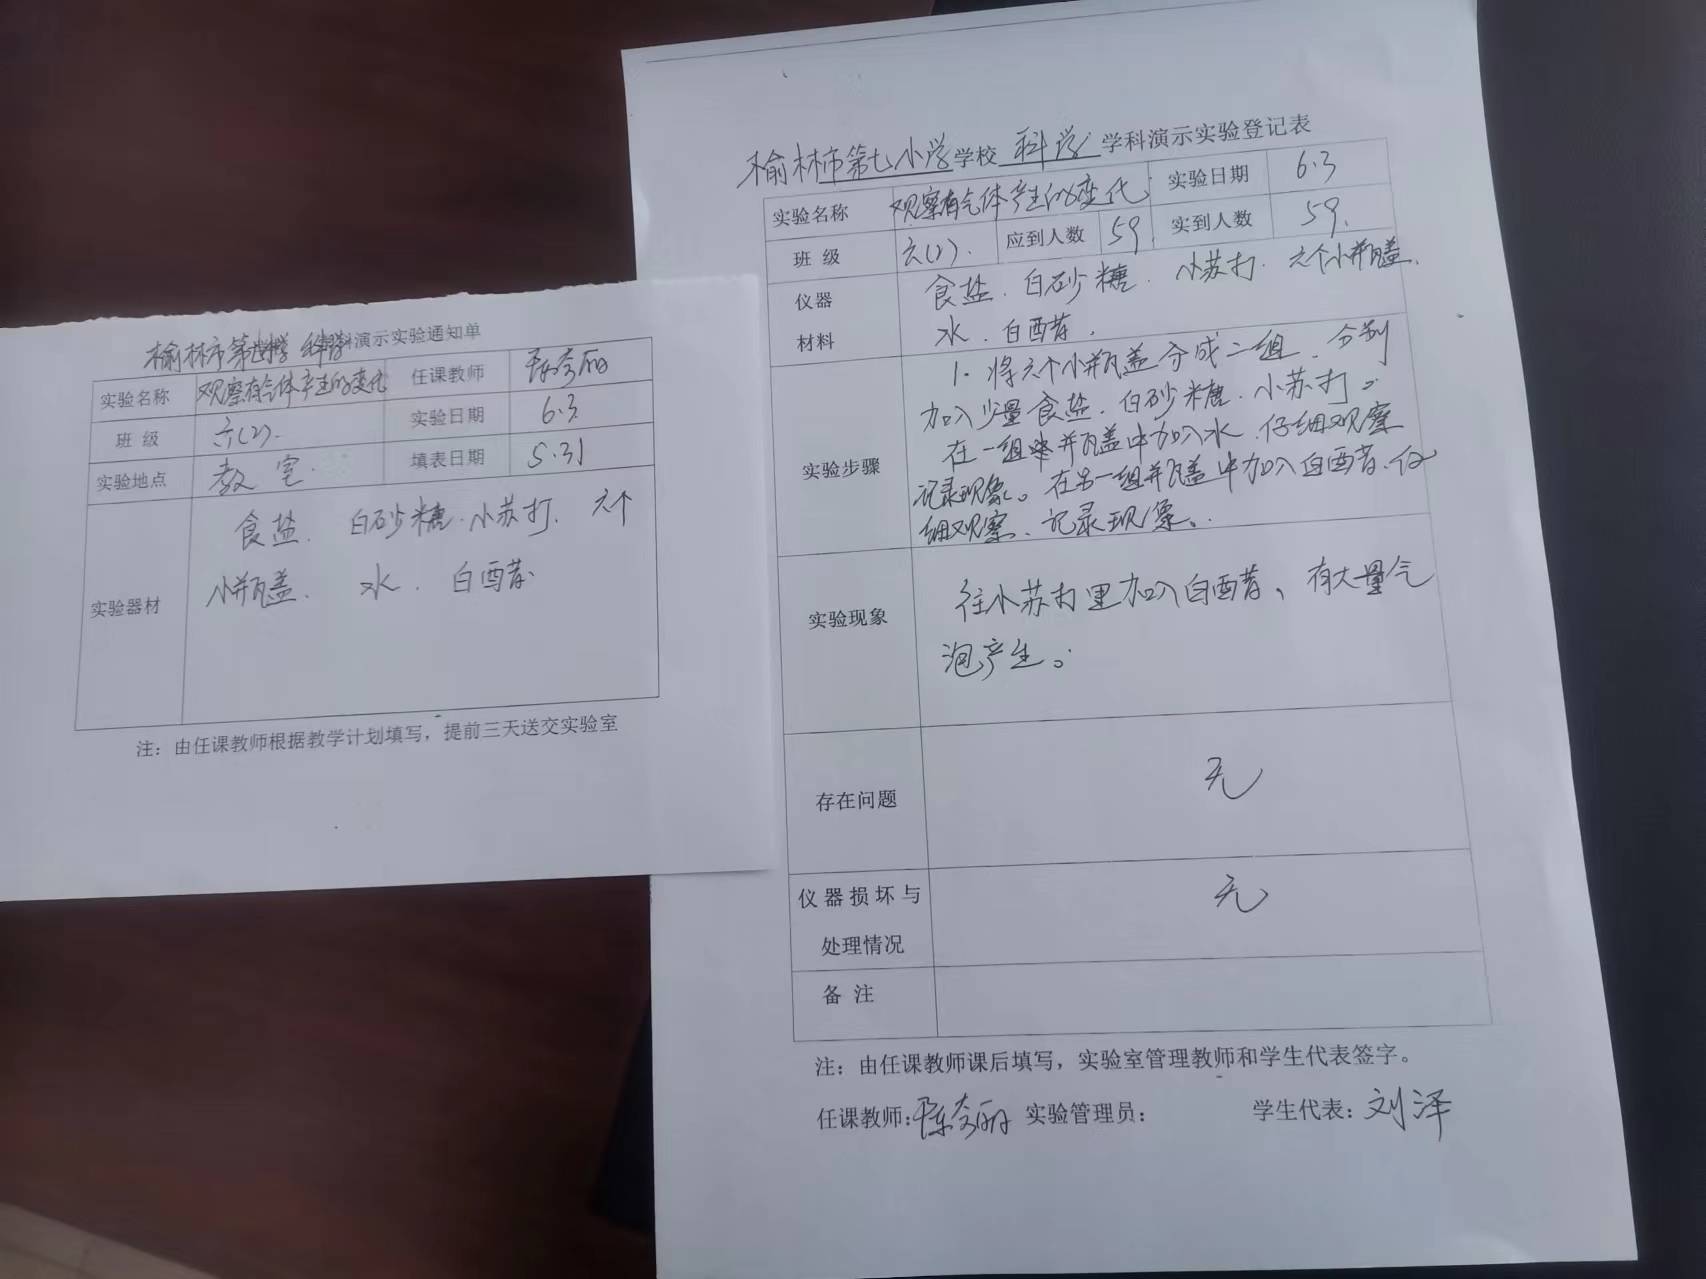 榆林市第七小学 科学 学科演示实验通知单
实验名称 观察有气体产生的变化 任课教师 陈秀丽
班 级 六(2). 实验日期 6.3
实验地点 教室. 填表日期 5.31
实验器材 食盐. 白砂糖.小苏打. 六个
小瓶盖. 水. 白醋.
注：由任课教师根据教学计划填写，提前三天送交实验室
榆林市第七小学学校 科学 学科演示实验登记表
实验名称 观察有气体产生的变化 实验日期 6.3
班 级 六(2). 应到人数 59 实到人数 59.
仪器 食盐. 白砂糖. 小苏打. 六个小瓶盖.
材料 水. 白醋.
1. 将六个小瓶盖分成二组. 分别
加入少量食盐. 白砂糖. 小苏打。
实验步骤 在一组瓶盖中加入水. 仔细观察
记录现象。在另一组瓶盖中加入白醋. 仔
细观察、记录现象。
实验现象 往小苏打里加入白醋, 有大量气
泡产生。
存在问题 无
仪器损坏与 无
处理情况
备 注
注：由任课教师课后填写，实验室管理教师和学生代表签字。
任课教师:陈秀丽 实验管理员： 学生代表：刘泽